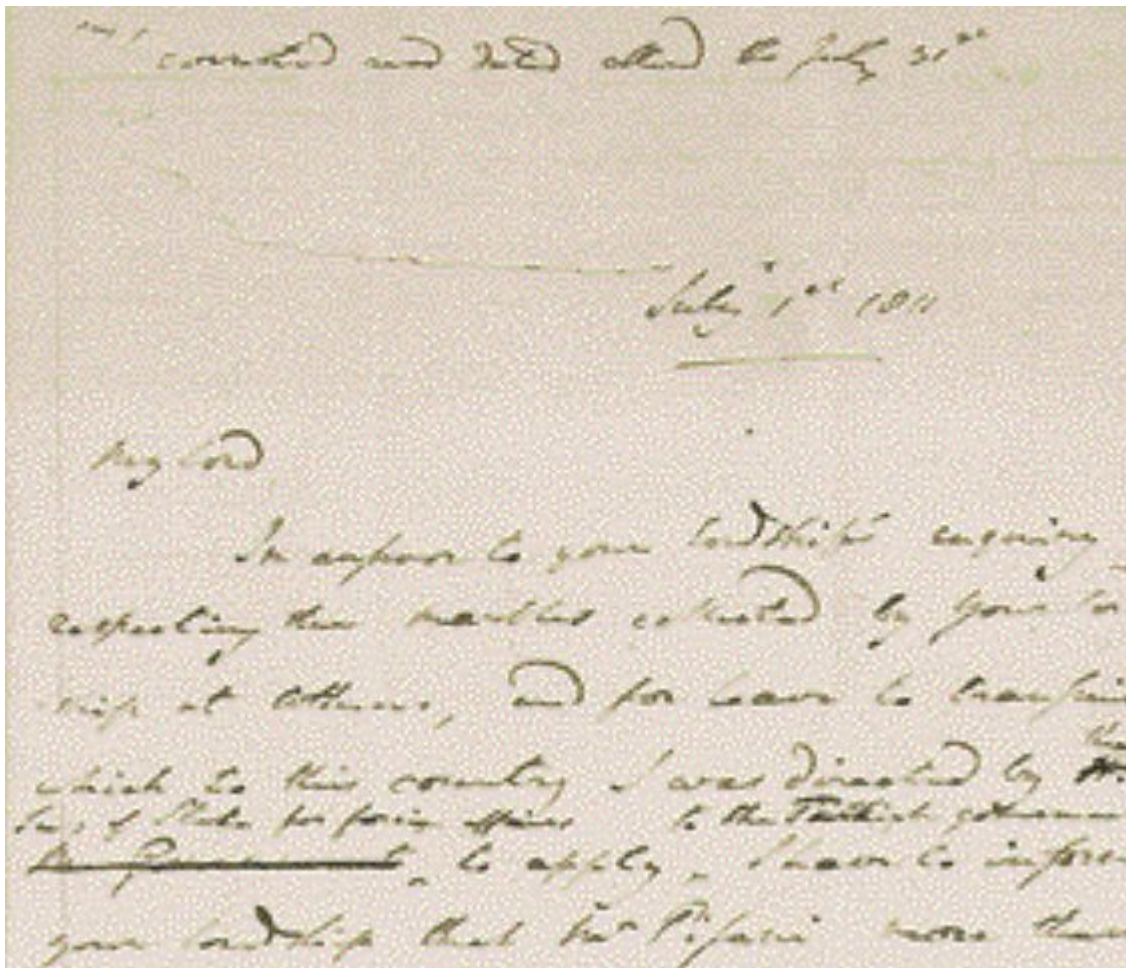 corrected and dated altered to July 31st
July 1st 1811
My Lord
In answer to your Lordship's enquiry
respecting the marbles collected by your Lord
ship at Athens, and for leave to transmit
which to this country I was directed by the
Secy of State for forin affairs to the Turkish governmen
to apply, I have to inform
your Lordship that Mr Pisani more than